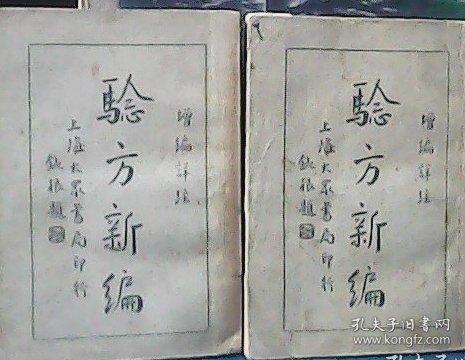 增編詳註
騐方新編
上海大眾書局印行
題
增編詳註
騐方新編
上海大眾書局印行
題
孔夫子旧书网
www.kongfz.com